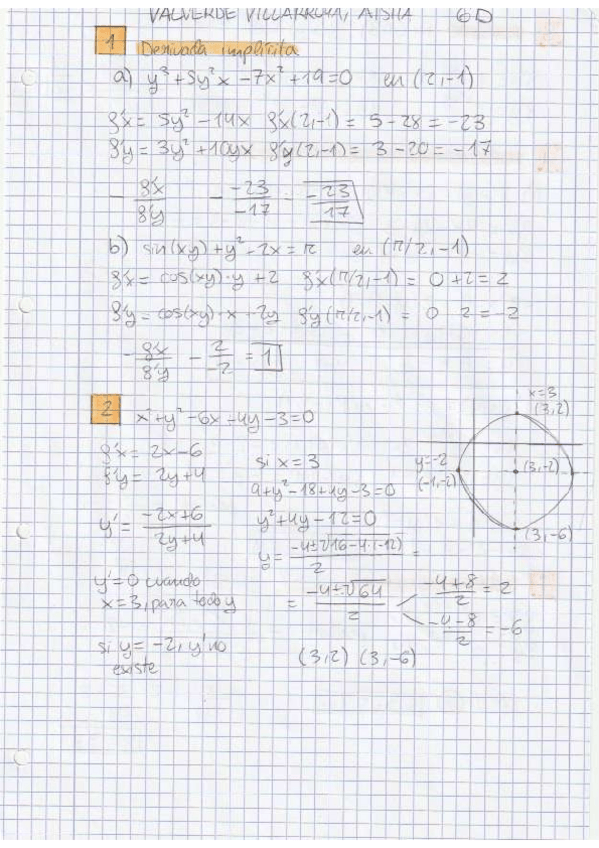 VALVERDE VILLARROYA, AISHA 6D
1 Derivada implícita
a) y³+5y²x-7x²+19=0 en (2,-1)
f'x= 5y²-14x f'x(2,-1)= 5-28=-23
f'y= 3y²+10yx f'y(2,-1)= 3-20=-17
- f'x/f'y - -23/-17 = -23/17
b) sin(xy)+y²-2x=π en (π/2,-1)
f'x= cos(xy)·y+2 f'x(π/2,-1)= 0+2=2
f'y= cos(xy)·x+2y f'y(π/2,-1)= 0 2=-2
- f'x/f'y - 2/-2 = 1
2 x²+y²-6x+4y-3=0
f'x= 2x-6
f'y= 2y+4
y'= -2x+6/2y+4
y'=0 cuando
x=3, para todo y
si y=-2, y' no
existe
si x=3
9+y²-18+4y-3=0
y²+4y-12=0
y= -4±√16-4·(-12)/2 =
= -4±√64/2
-4+8/2 = 2
-4-8/2 = -6
(3,2) (3,-6)
x=3
(3,2)
y=-2
(-1,-2)
(3,-2)
(3,-6)